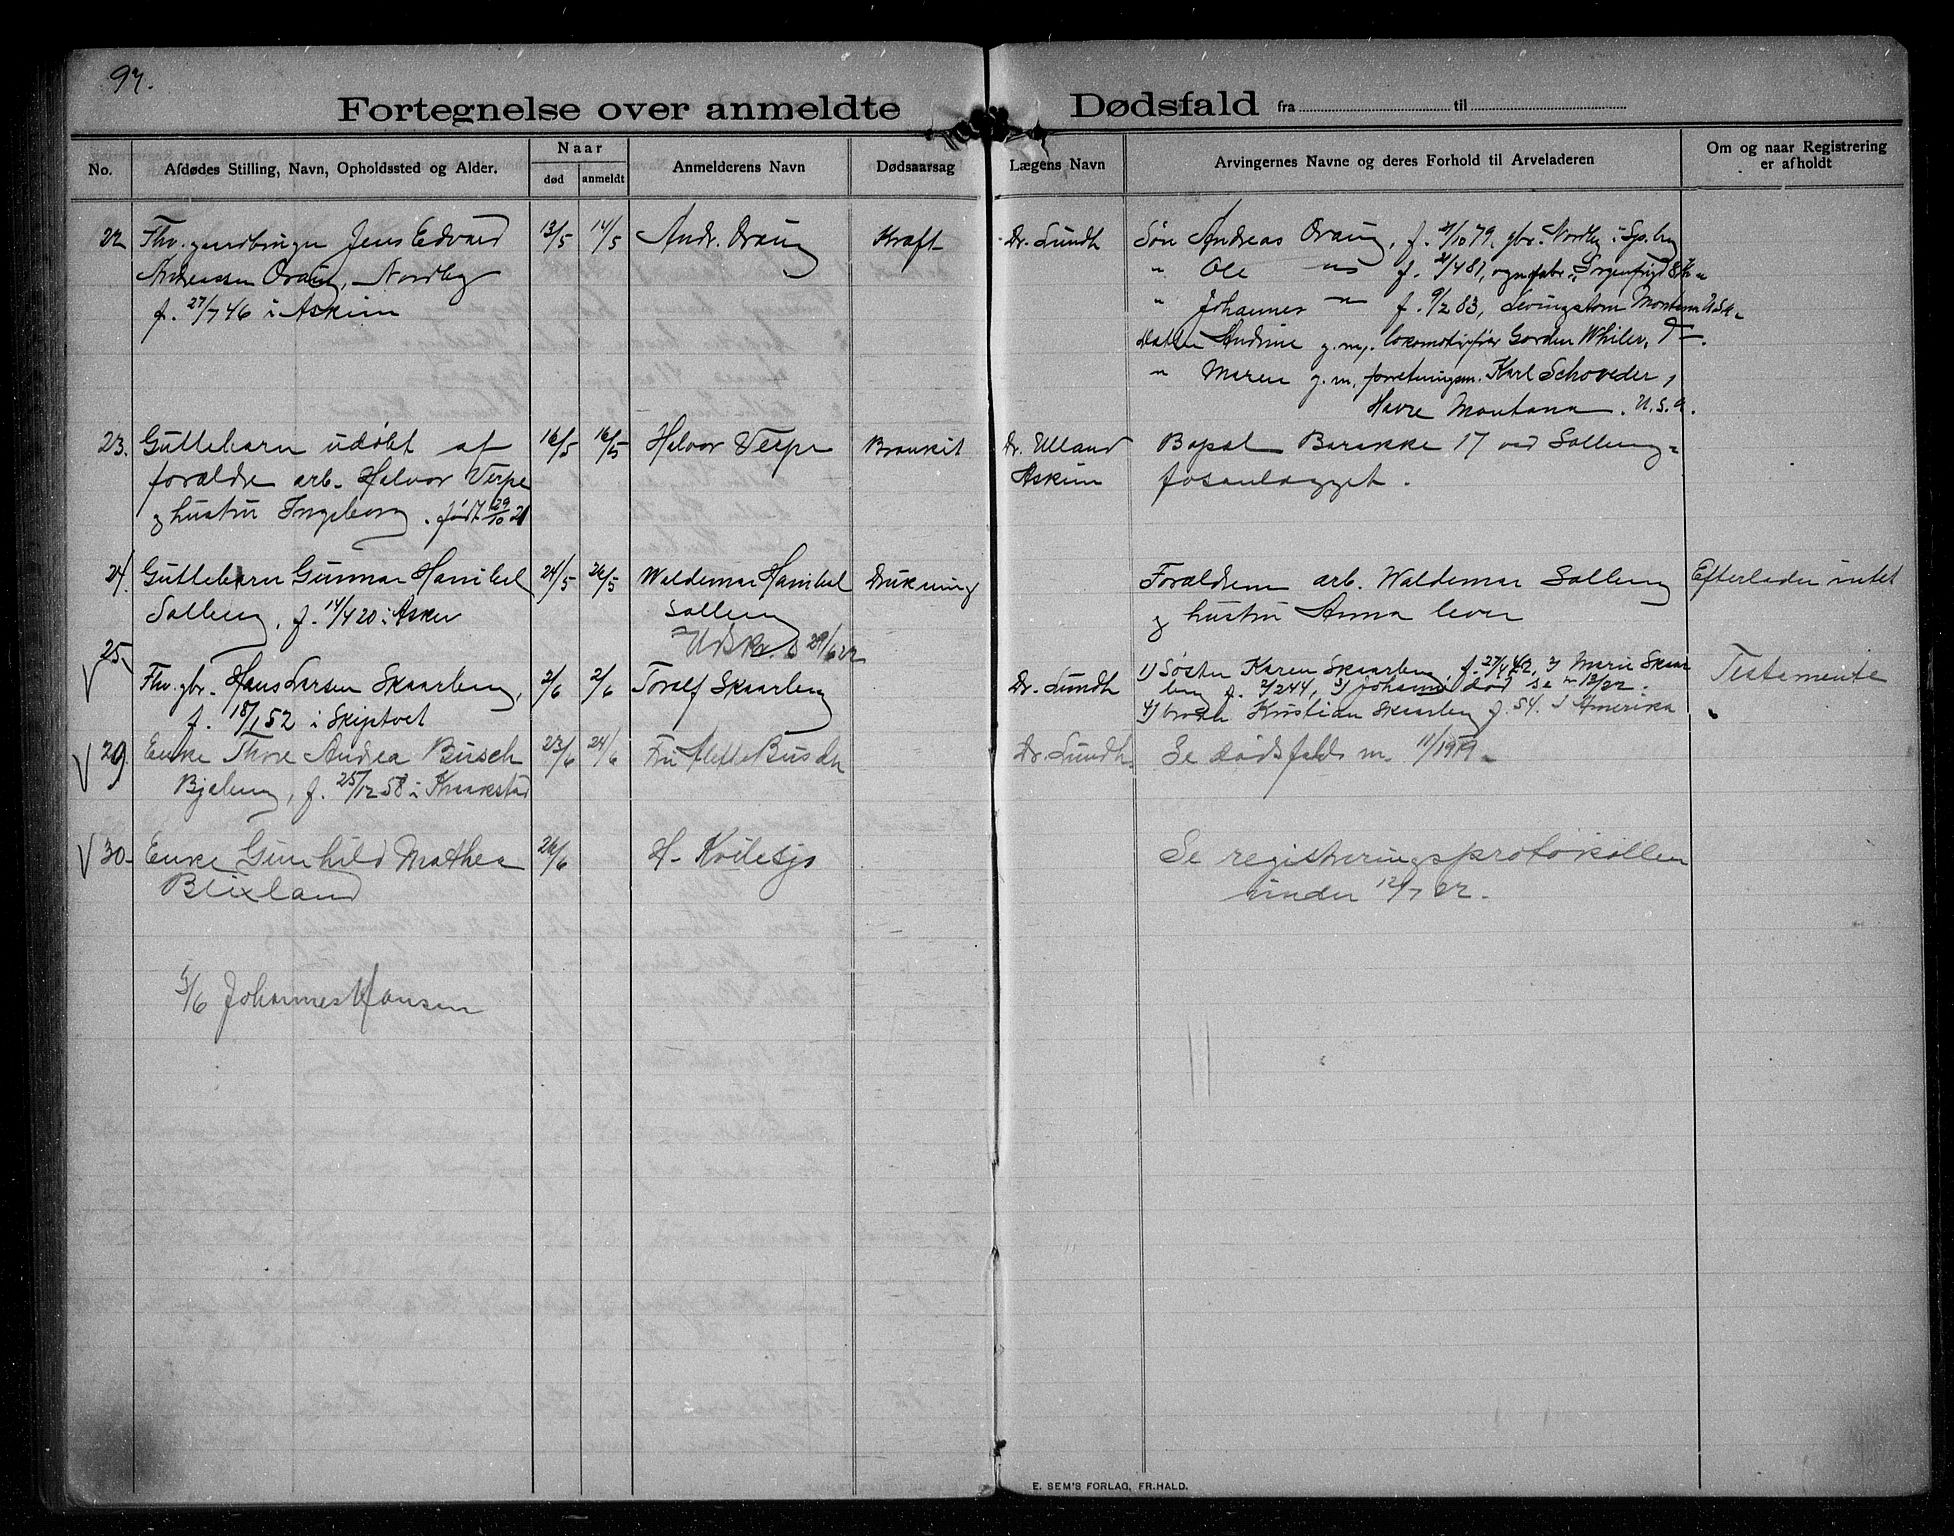 97.
Fortegnelse over anmeldte Dødsfald fra til
No.
Afdødes Stilling, Navn, Opholdssted og Alder.
Naar
død
anmeldt
Anmelderens Navn
Dødsaarsag
Lægens Navn
Arvingernes Navne og deres Forhold til Arveladeren
Om og naar Registrering
er afholdt
22 Fhv. gaardbruger Jens Edvard
Andreassen Oraug, Nordby
f. 27/7 46 i Askim
13/5
14/5
Andr. Oraug
Kræft
Dr. Lundh
Søn Andreas Oraug, f. /10 79, gbr. Nordby i Sp.berg
" Ole " f. /4 81,
" Johannes " f. 9/2 83, Levingstom Montana U.S.A.
Datter Andrine g.m. lokomotivfører Gorden Whiler,
" Maren g.m. forretningsm. Karl Schoveder,
Havre Montana. U.S.A.
23. Guttebarn udøbt af
forældre arb. Halvor Verpe
og hustru Ingeborg. født 29/10 21
16/5
16/5
Halvor Verpe
Bronkit
Dr. Ulland
Askim
Bopæl Barakke 17 ved Solberg-
fosanlægget.
24. Guttebarn Gunnar Hanibal
Solberg, f. 14/4 20 i Asker
24/5
26/5
Waldemar Hanibal
Solberg
Drukning
Forældrene arb. Waldemar Solberg
og hustru Anna lever
Efterlader intet
25.
Fhv. gbr. Hans Larsen Skaarberg,
f. 18/1 52 i Skiptvet
2/6
2/6
29/6 22
Toralf Skaarberg
Dr. Lundh
1) Søster Karen Skaarberg, f. 27/4 42, 2) Marie Skaar
berg f. 2/2 44, 3) Johanne død se 13/22.
4) broder Kristian Skaarberg f. 54. i Amerika
Testamente
29 Enke Thore Andrea Busch
Bjeberg, f. 25/12 58 i Kraakstad
23/6
24/6
Fru Busch
Dr. Lundh.
Se dødsfalds m. 11/1919.
30. Enke Gunhild Mathea
Blixland
26/6
H. Kvilesjø
Se registreringsprotokollen
under 12/7 22.
5/6 Johannes Hansen
E. SEM'S FORLAG, FR.HALD.